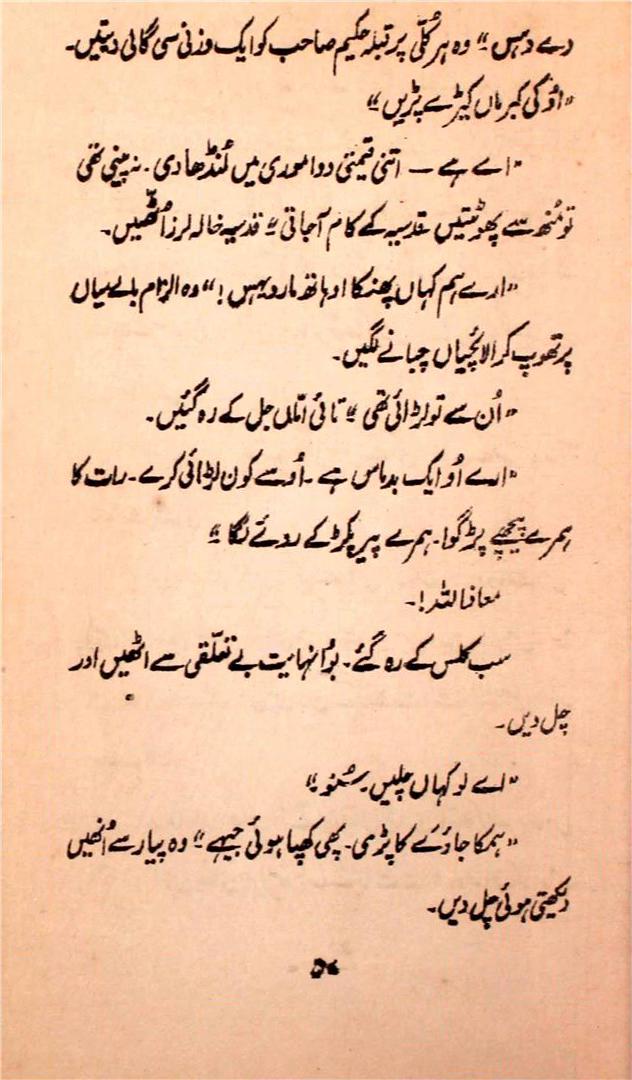 دے دہس" وہ ہر کُلّی پر قبلہ حکیم صاحب کو ایک وزنی سی گالی دیتیں۔
"اؤ کی کبر ماں کیڑے پڑیں"
"اے ہے — اتنی قیمتی دوا موری میں لُنڈھا دی۔ نہ پینی تھی
تو مُنھ سے پھوٹتیں قدسیہ کے کام آجاتی" قدسیہ خالہ لرز اُٹھیں۔
"ارے ہم کہاں پھنکا او ہاتھ مار دہس!" وہ الزام بالے میاں
پر تھوپ کر الائچیاں چبانے لگیں۔
"اُن سے تو لڑائی تھی" تائی امّاں جل کے رہ گئیں۔
"ارے اُو ایک بدماس ہے۔ اُو سے کون لڑائی کرے۔ رات کا
ہمرے پیچھے پڑ گوا۔ ہمرے پیر پکڑ کے روئے لگا"
معاذاللہ!۔
سب کلس کے رہ گئے۔ بوا نہایت بے تعلّقی سے اٹھیں اور
چل دیں۔
"اے لو کہاں چلیں۔ سُنو"
"ہمکا جاوئے کا پڑی۔ پھی کھپا ہوئی جیہے" وہ پیار سے اُنھیں
دیکھتی ہوئی چل دیں۔
۵۷